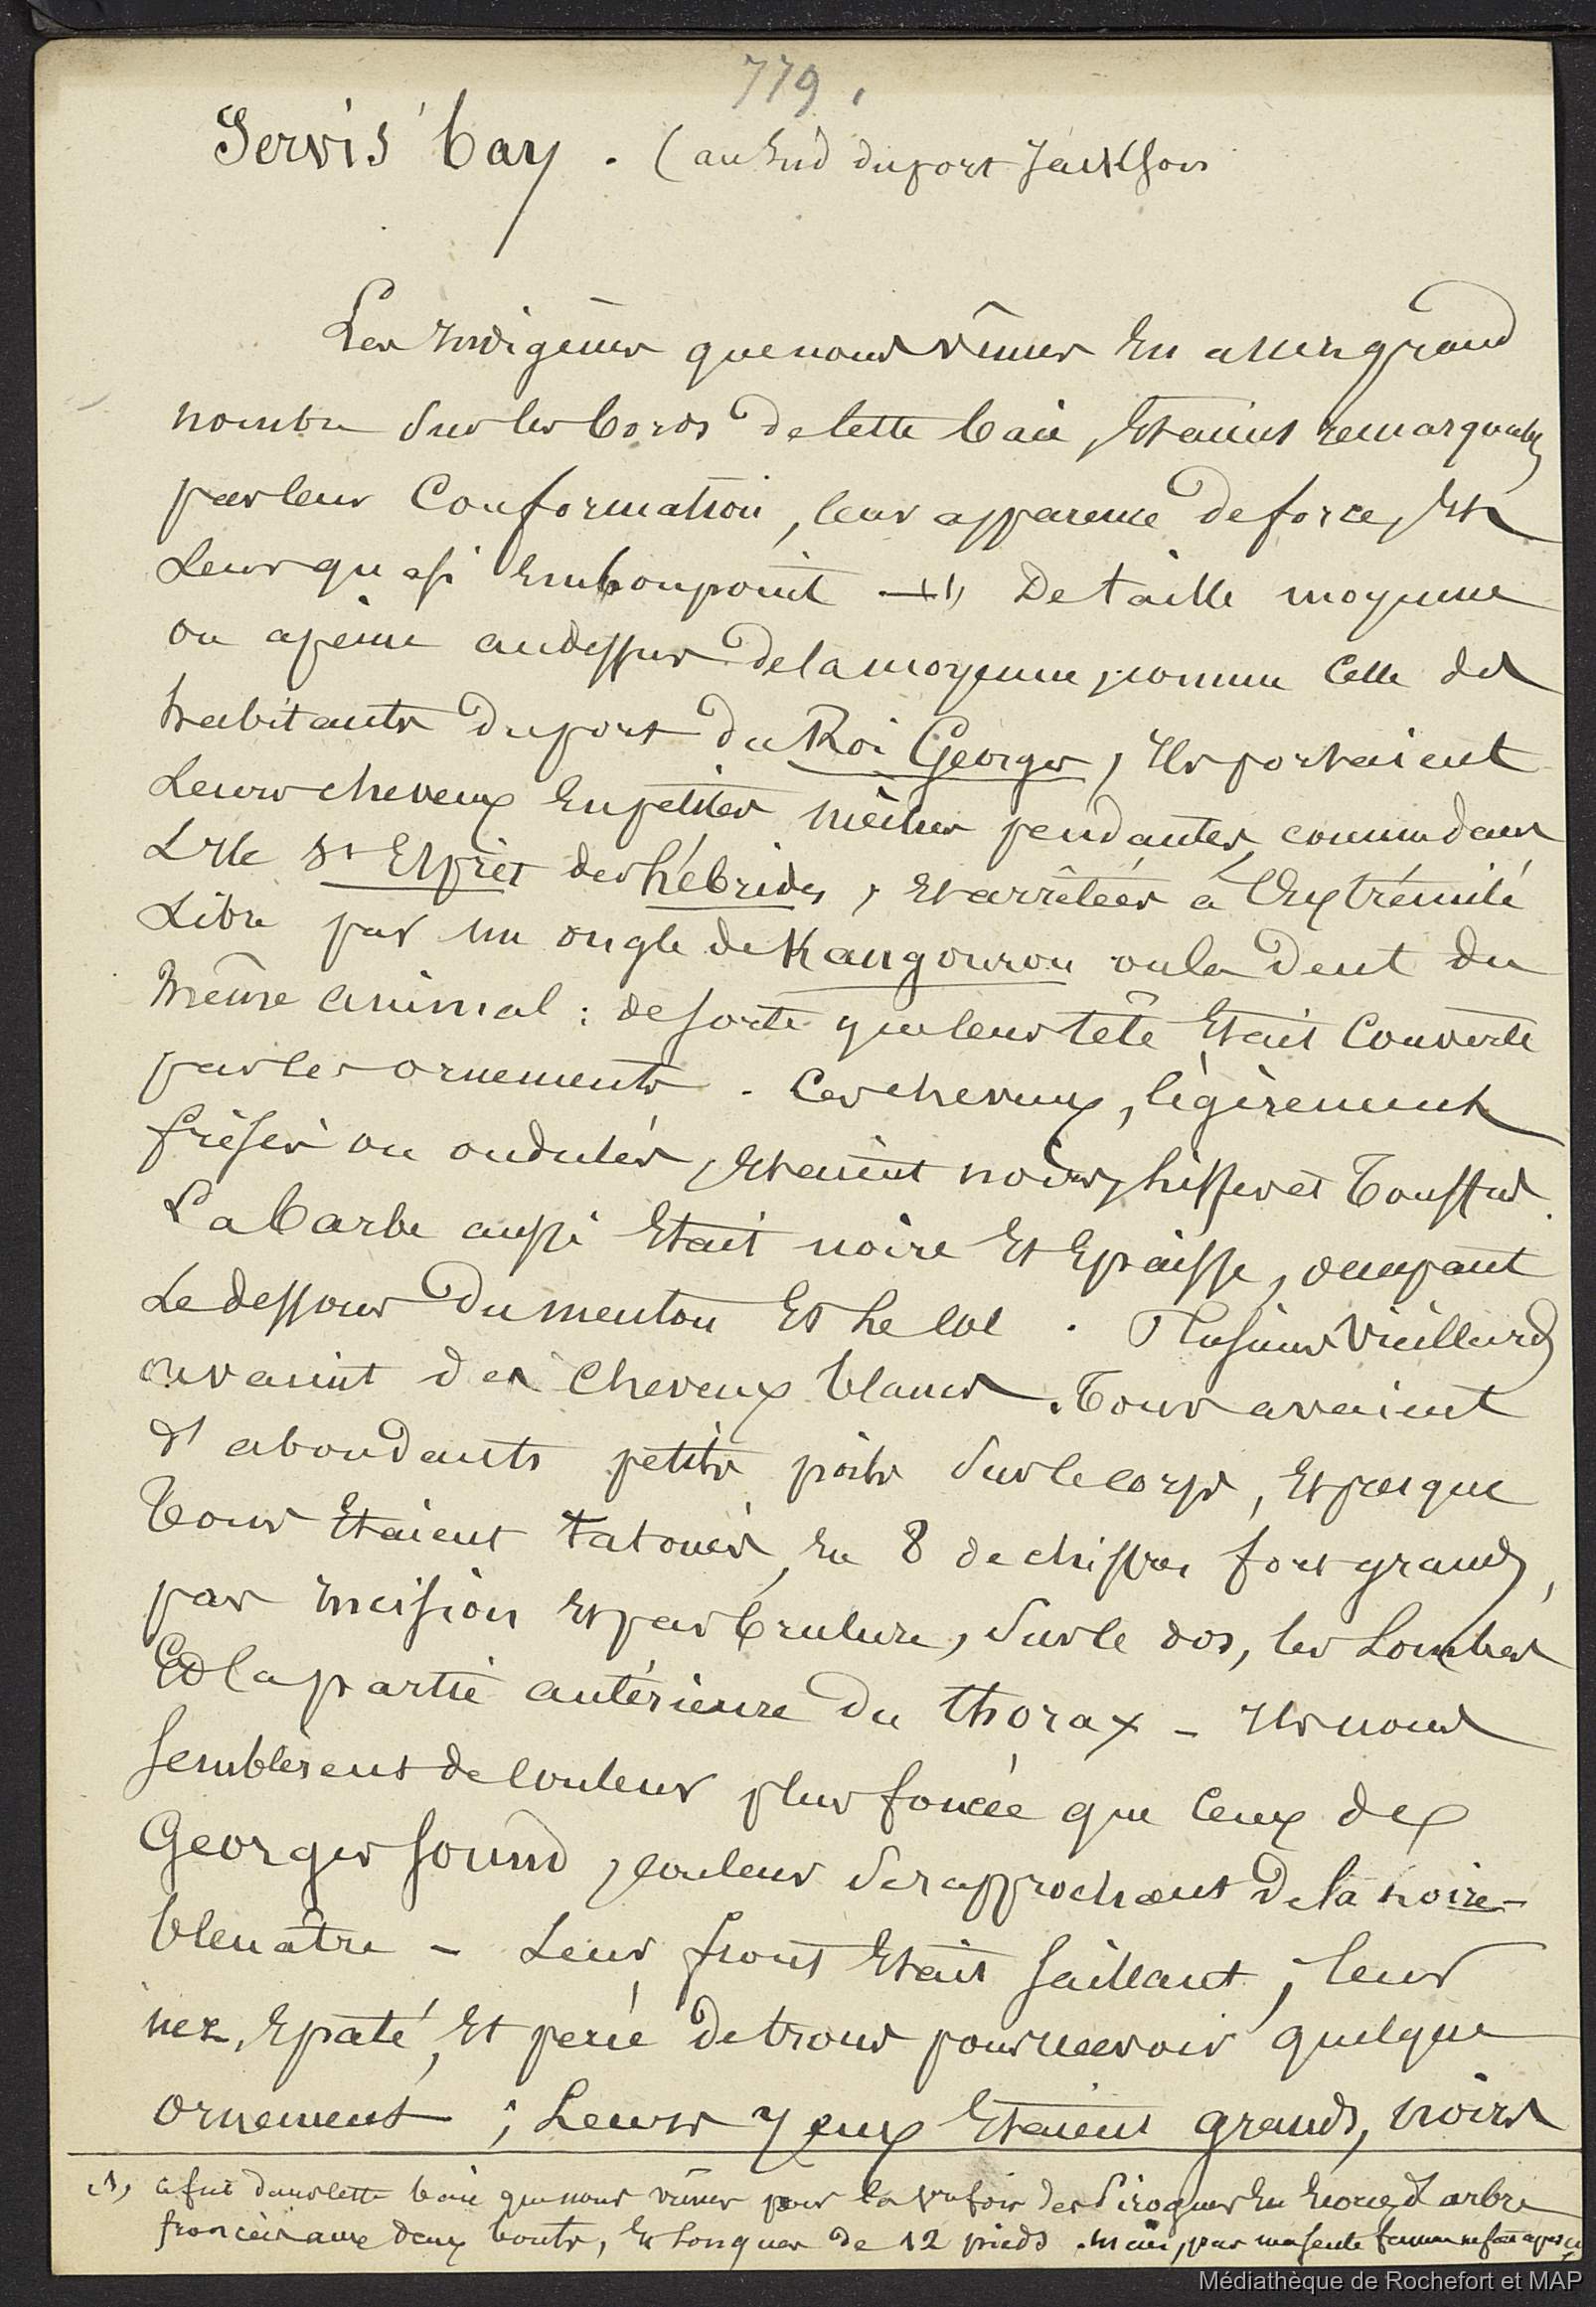 779.
Jervis' bay. (au Sud du port Jackson
Les Indigènes que nous vîmes En assez grand
nombre sur les bords de cette baie, Etaient remarquables
par leur Conformation, leur apparence de force, Et
Leur quasi Embonpoint (1) De taille moyenne
ou à peine audessus de la moyenne, comme Celle des
habitants du port du Roi Georges, Ils portaient
Leurs cheveux En petites mèches pendantes, comme dans
L'Ile St Esprit des hébrides, Et arrêtées à l'Extrémité
Libre par un ongle de Kangourou ou la dent du
même animal : de sorte que leur tête Etait Couverte
par les ornements. Ces cheveux, légèrement
frisés ou ondulés, Etaient noirs, lisses et Touffus.
La barbe aussi Etait noire Et Epaisse, occupant
Le dessous du menton Et Le col. Plusieurs Vieillards
avaient des Cheveux blancs. Tous avaient
d'abondants petits poils sur le corps, Et presque
Tous Etaient tatoués, En 8 de chiffre fort grands,
par Incision Et par brulure, sur le dos, les Lombes
Et la partie antérieure du thorax - Ils nous
semblèrent de Couleur plus foncée que Ceux de
Georges Sound, couleur se rapprochant de la noire-
bleuâtre - Leur front Etait saillant, leur
nez, Epaté, Et percé de trous pour recevoir quelque
ornement ; Leurs yeux Etaient grands, noirs
(1) Ce fut dans cette baie que nous vîmes pour la 1re fois des Pirogues En Ecorce d'arbre
froncées aux deux bouts, Et Longues de 12 pieds. Mais, pas une seule femme ne fut aperçue
Médiathèque de Rochefort et MAP